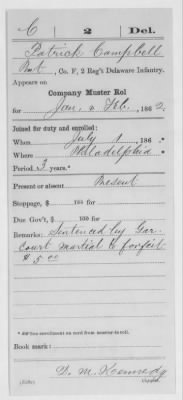 C 2 Del.
Patrick Campbell
Pvt., Co. F, 2 Reg't Delaware Infantry.
Appears on
Company Muster Roll
for Jan. & Feb., 1862.
Joined for duty and enrolled:
When July 1, 186 *
Where Philadelphia
Period 3 years.*
Present or absent Present
Stoppage, $ 100 for
Due Gov't, $ 100 for
Remarks: Sentenced by Gar.
Court martial to forfeit
$5.00
* See enrollment on card from muster-in roll.
Book mark:
D. M. Kennedy
Copyist.